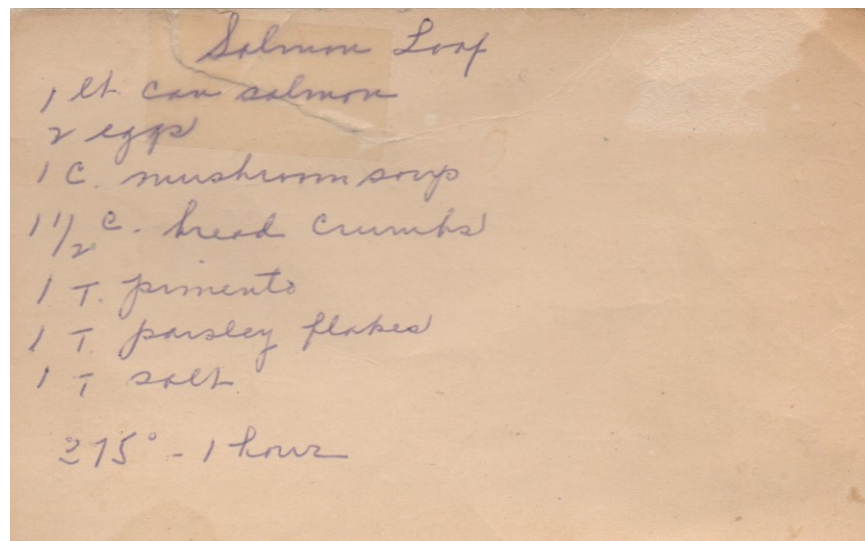 Salmon Loaf
1 lb. can salmon
2 eggs
1 C. mushroom soup
1 1/2 C. bread crumbs
1 T. pimento
1 T. parsley flakes
1 T salt
375° - 1 hour